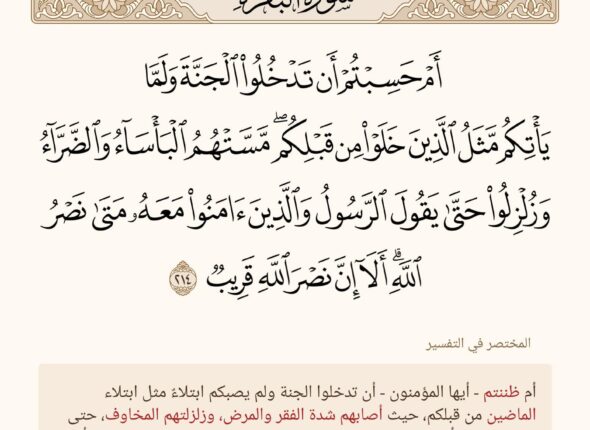 سورة البقرة
أَمْ حَسِبْتُمْ أَن تَدْخُلُوا۟ ٱلْجَنَّةَ وَلَمَّا
يَأْتِكُم مَّثَلُ ٱلَّذِينَ خَلَوْا۟ مِن قَبْلِكُم ۖ مَّسَّتْهُمُ ٱلْبَأْسَآءُ وَٱلضَّرَّآءُ
وَزُلْزِلُوا۟ حَتَّىٰ يَقُولَ ٱلرَّسُولُ وَٱلَّذِينَ ءَامَنُوا۟ مَعَهُۥ مَتَىٰ نَصْرُ
ٱللَّهِ ۗ أَلَآ إِنَّ نَصْرَ ٱللَّهِ قَرِيبٌ ٢١٤
المختصر في التفسير
أم ظننتم - أيها المؤمنون - أن تدخلوا الجنة ولم يصبكم ابتلاءٌ مثل ابتلاء
الماضين من قبلكم، حيث أصابهم شدة الفقر والمرض، وزلزلتهم المخاوف، حتى